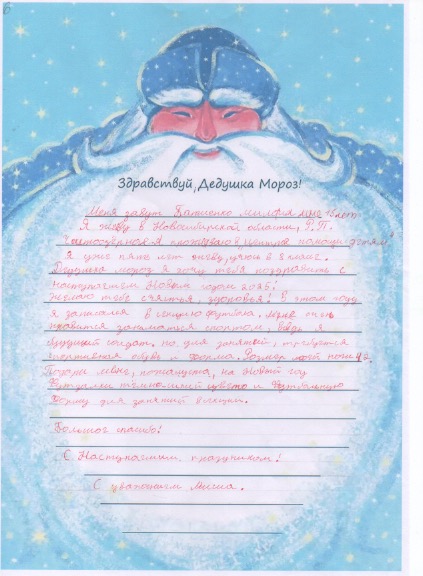 Здравствуй, Дедушка Мороз!
Меня зовут Михаил мне 15 лет
Я живу в Новосибирской области, Р.П.
проживаю в центре помощи детям
Я уже пять лет живу, учюсь в 8 класе.
Дедушка мороз я хочу тебя поздравить с
наступаюгием Новым годом 2025!
Желаю тебе счастья, здоровья! В этом году
я записался в секцию футбола. Мне очень
нравится заниматься спортом, ведь я
будущий солдат, но для занятий, требуется
спортивная обувь и форма. Размер моей ноги 42.
Подари мне, пожалуйста, на Новый год
футзалки цвета и футбольную
форму для занятий в секции.
Большое спасибо!
С Наступаюгим праздником!
С уважением Миша.